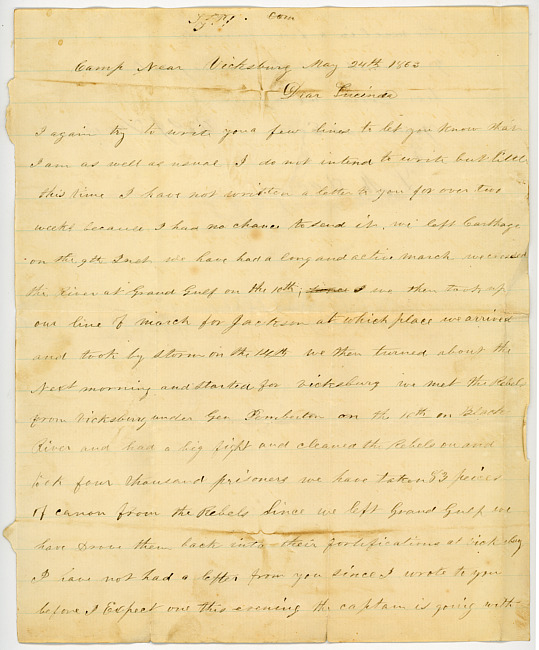 Com
Camp Near Vicksburg May 24th 1863
Dear Lucinda
I again try to write you a few lines to let you know that
I am as well as usual I do not intend to write but little
this time I have not written a letter to you for over two
weeks because I had no chance to send it, we left Carthage
on the 9th Inst we have had a long and active march we crossed
the River at Grand Gulf on the 10th, we then took up
our line of march for Jackson at which place we arrived
and took by storm on the 14th we then turned about the
Next morning and started for vicksburg we met the Rebels
from vicksburg under Gen Pemberton on the 16th on Black
River and had a big fight and cleaned the Rebels out and
took four thousand prisoners we have taken 83 peices
of canon from the Rebels Since we left Grand Gulf we
have drove them back into their fortifications at Vicksburg
I have not had a letter from you since I wrote to you
before I Expect one this evening the captain is going with